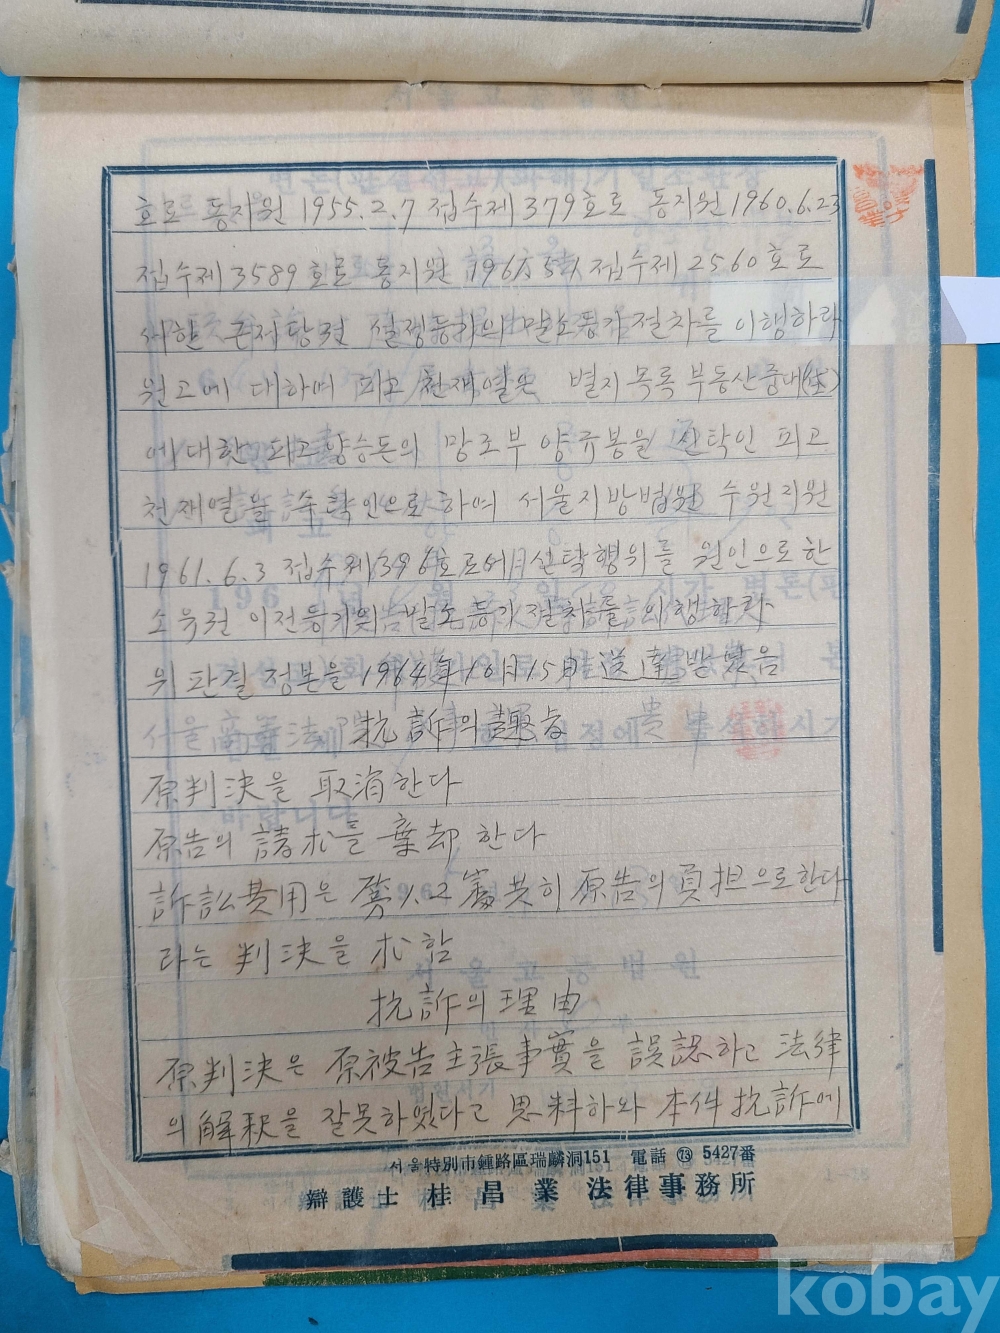 호로 동지원 1955.2.7 접수제379호로 동지원1960.6.23
접수제3589호로 동지원 접수제2560호로
써한 근저당권 설정등기의 말소등기절차를 이행하라
원고에 대하여 피고 천재열은 별지목록부동산중
에대한 피고양승돈의 망조부 양규봉을 신탁인 피고
천재열을 수탁인으로하여 서울지방법원 수원지원
1961.6.3 접수제 신탁행위를 원인으로한
소유권 이전등기의 말소등기절차를 이행하라
위 판결 정본을 1964年10月15日 送達받았음
抗訴의 趣旨
原判決을 取消한다
原告의 請求를 棄却한다
訴訟費用은 第1.2審共히 原告의 負担으로한다
라는 判決을 求함
抗訴의 理由
原判決은 原被告主張事實을 誤認하고 法律
의解釈을 잘못하였다고 思料하와 本件抗訴에
서울特別市鍾路區瑞麟洞151 電話 73 5427番
辯護士 桂昌業 法律事務所
kobay